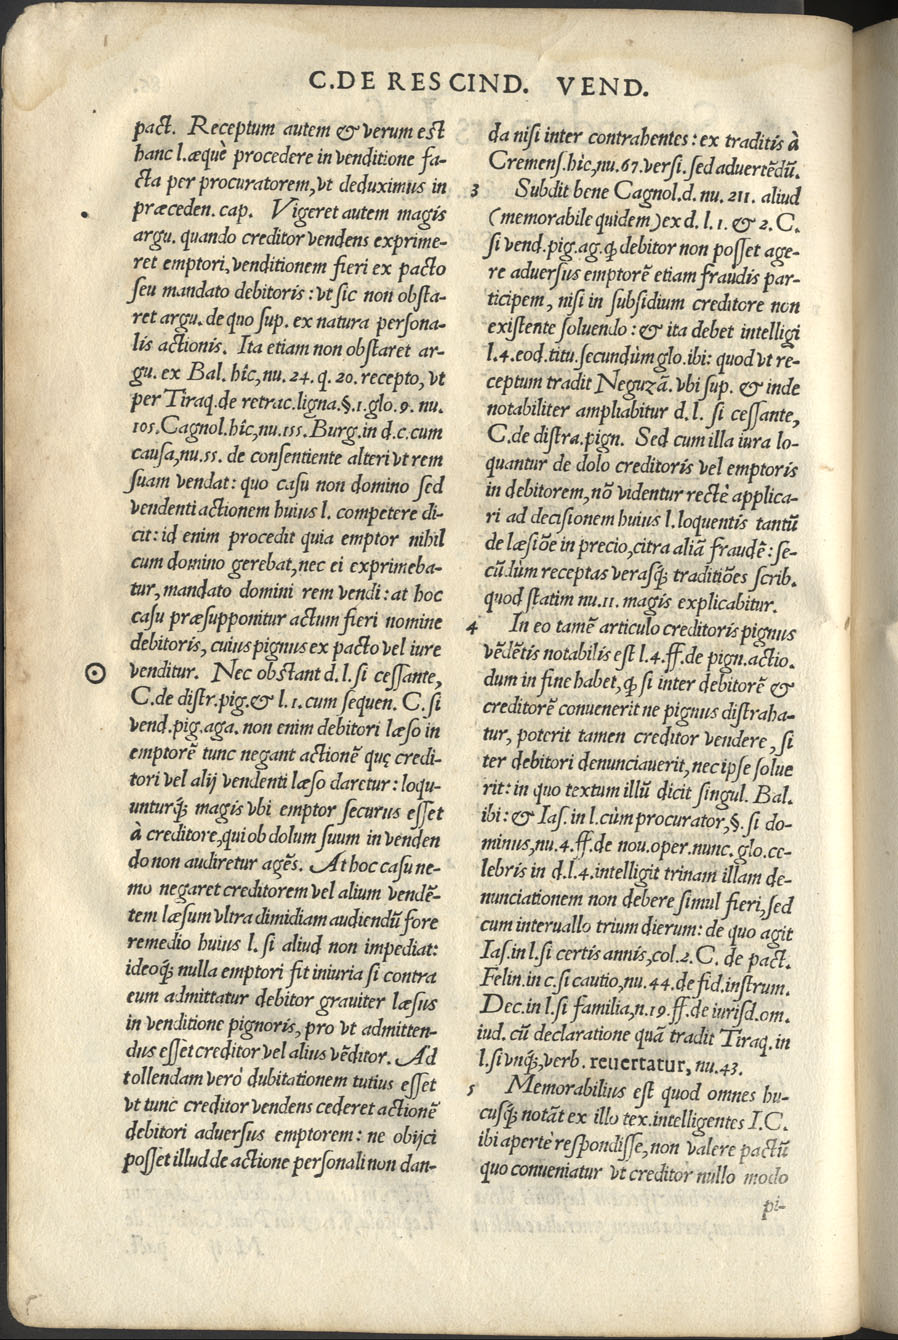 C.DE RESCIND. VEND.
pact. Receptum autem & verum est
hanc l.æquè procedere in venditione fa-
cta per procuratorem, vt deduximus in
præceden. cap. Vigeret autem magis
argu. quando creditor vendens exprime-
ret emptori, venditionem fieri ex pacto
seu mandato debitoris: vt sic non obsta-
ret argu. de quo sup. ex natura persona-
lis actionis. Ita etiam non obstaret ar-
gu. ex Bal. hîc, nu. 24. q. 20. recepto, vt
per Tiraq. de retrac. ligna. §. 1. glo. 9. nu.
105. Cagnol. hîc, nu. 155. Burg. in d. c. cum
causa, nu. 55. de consentiente alteri vt rem
suam vendat: quo casu non domino sed
vendenti actionem huius l. competere di-
cit: id enim procedit quia emptor nihil
cum domino gerebat, nec ei exprimeba-
tur, mandato domini rem vendi: at hoc
casu præsupponitur actum fieri nomine
debitoris, cuius pignus ex pacto vel iure
venditur. Nec obstant d. l. si cessante,
C. de distr. pig. & l. 1. cum sequen. C. si
vend. pig. aga. non enim debitori læso in
emptorē tunc negant actionē quę credi-
tori vel alij vendenti læso daretur: loqu-
unturq́; magis vbi emptor securus esset
à creditore, qui ob dolum suum in venden
do non audiretur agēs. At hoc casu ne-
mo negaret creditorem vel alium vendē-
tem læsum vltra dimidiam audiendū fore
remedio huius l. si aliud non impediat:
ideoq́; nulla emptori fit iniuria si contra
eum admittatur debitor grauiter læsus
in venditione pignoris, pro vt admitten-
dus esset creditor vel alius vēditor. Ad
tollendam verò dubitationem tutius esset
vt tunc creditor vendens cederet actionē
debitori aduersus emptorem: ne obijci
posset illud de actione personali non dan-
da nisi inter contrahentes: ex traditis à
Cremens. hîc, nu. 67. versi. sed aduertēdū.
3 Subdit bene Cagnol. d. nu. 211. aliud
(memorabile quidem) ex d. l. 1. & 2. C.
si vend. pig. ag. ꝙ debitor non posset age-
re aduersus emptorē etiam fraudis par-
ticipem, nisi in subsidium creditore non
existente soluendo: & ita debet intelligi
l. 4. eod. titu. secundùm glo. ibi: quod vt re-
ceptum tradit Neguzā. vbi sup. & inde
notabiliter ampliabitur d. l. si cessante,
C. de distra. pign. Sed cum illa iura lo-
quantur de dolo creditoris vel emptoris
in debitorem, nō videntur rectè applica-
ri ad decisionem huius l. loquentis tantū
de læsiōe in precio, citra aliā fraudē: se-
cūdùm receptas verasq́; traditiōes scrib.
quod statim nu. 11. magis explicabitur.
4 In eo tamē articulo creditoris pignus
vēdētis notabilis est l. 4. ff. de pign. actio.
dum in fine habet, ꝙ si inter debitorē &
creditorē conuenerit ne pignus distraha-
tur, poterit tamen creditor vendere, si
ter debitori denunciauerit, nec ipse solue
rit: in quo textum illū dicit singul. Bal.
ibi: & Ias. in l. cùm procurator, §. si do-
minus, nu. 4. ff. de nou. oper. nunc. glo. ce-
lebris in d. l. 4. intelligit trinam illam de-
nunciationem non debere simul fieri, sed
cum interuallo trium dierum: de quo agit
Ias. in l. si certis annis, col. 2. C. de pact.
Felin. in c. si cautio, nu. 44. de fid. instrum.
Dec. in l. si familia, n. 19. ff. de iurisd. om.
iud. cū declaratione quā tradit Tiraq. in
l. si vnq́;, verb. reuertatur, nu. 43.
5 Memorabilius est quod omnes hu-
cusq́; notāt ex illo tex. intelligentes I. C.
ibi apertè respondisse, non valere pactū
quo conueniatur vt creditor nullo modo
pi-